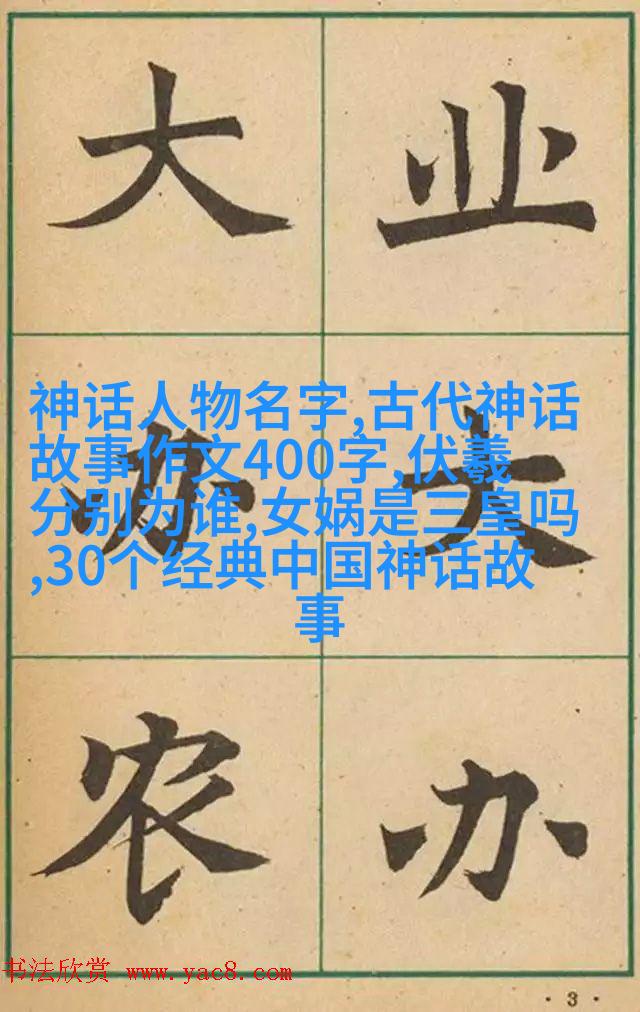 大办农
业大办
神话人物名字,古代神话
故事作文400字,伏羲
分别为谁,女娲是三皇吗
,30个经典中国神话故
事
书法欣赏 www.yac8.com
·3·